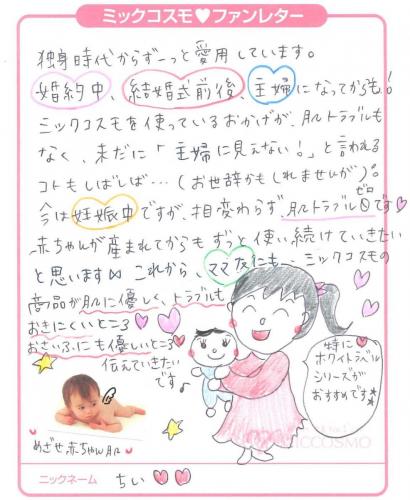 ミックコスモ♥ファンレター
独身時代からずーっと愛用しています。
婚約中、結婚式前後、主婦になってからも!
ミックコスモを使っているおかげか、肌トラブルも
なく、未だに「主婦に見えない!」と言われる
コトもしばしば…(お世辞かもしれませんが)。
今は妊娠中ですが、相変わらず、肌トラブル0です♡
ゼロ
赤ちゃんが産まれてからもずっと使い続けていきたい
と思います♡ これから、ママ友にも… ミックコスモの
商品が肌に優しく、トラブルも
おきにくいところ
おさいふにも優しいところ
伝えていきたい
です♪
特に
ホワイトラベル
シリーズが
おすすめです★
めざせ赤ちゃん肌♥
MICCOSMO
ニックネーム ちい♥♥